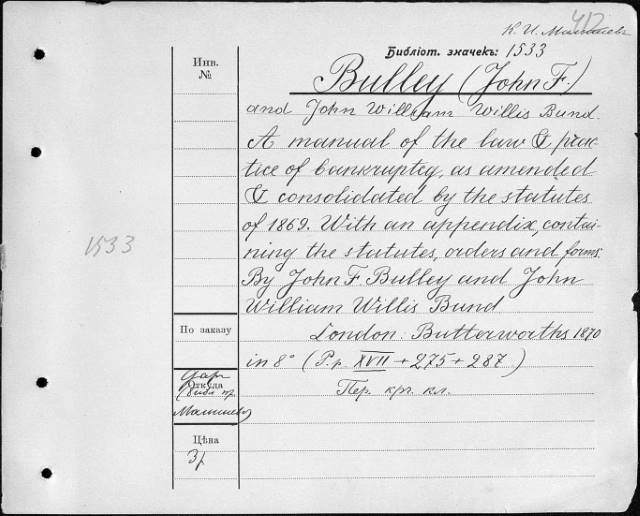 412
К. И. Малышевъ
Библіот. значекъ: 1533
Инв.
№
Bulley (John F.)
and John William Willis Bund.
A manual of the law & prac-
tice of bankruptcy, as amended
& consolidated by the statutes
of 1869. With an appendix, contai-
ning the statutes, orders and forms.
1533
By John F. Bulley and John
William Willis Bund
По заказу
London. Butterworths 1870
in 8° (P.p. XVII + 275 + 287)
Откуда
Пер. кр. кл.
Малышевъ
Цѣна
3р